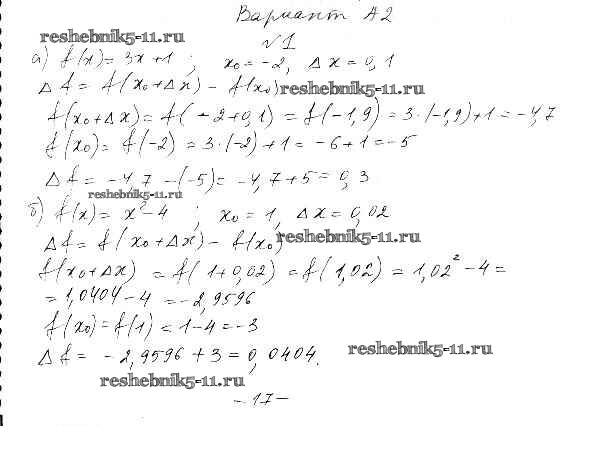 Вариант А2
reshebnik5-11.ru
№1
а) f(x) = 3x+1 ; x₀ = -2, Δx = 0,1
Δf = f(x₀+Δx) - f(x₀) reshebnik5-11.ru
f(x₀+Δx) = f(-2+0,1) = f(-1,9) = 3·(-1,9)+1 = -4,7
f(x₀) = f(-2) = 3·(-2)+1 = -6+1 = -5
Δf = -4,7-(-5) = -4,7+5 = 0,3
reshebnik5-11.ru
б) f(x) = x²-4 ; x₀ = 1, Δx = 0,02
Δf = f(x₀+Δx) - f(x₀) reshebnik5-11.ru
f(x₀+Δx) = f(1+0,02) = f(1,02) = 1,02²-4 =
= 1,0404-4 = -2,9596
f(x₀) = f(1) = 1-4 = -3
Δf = -2,9596+3 = 0,0404.
reshebnik5-11.ru
reshebnik5-11.ru
-17-